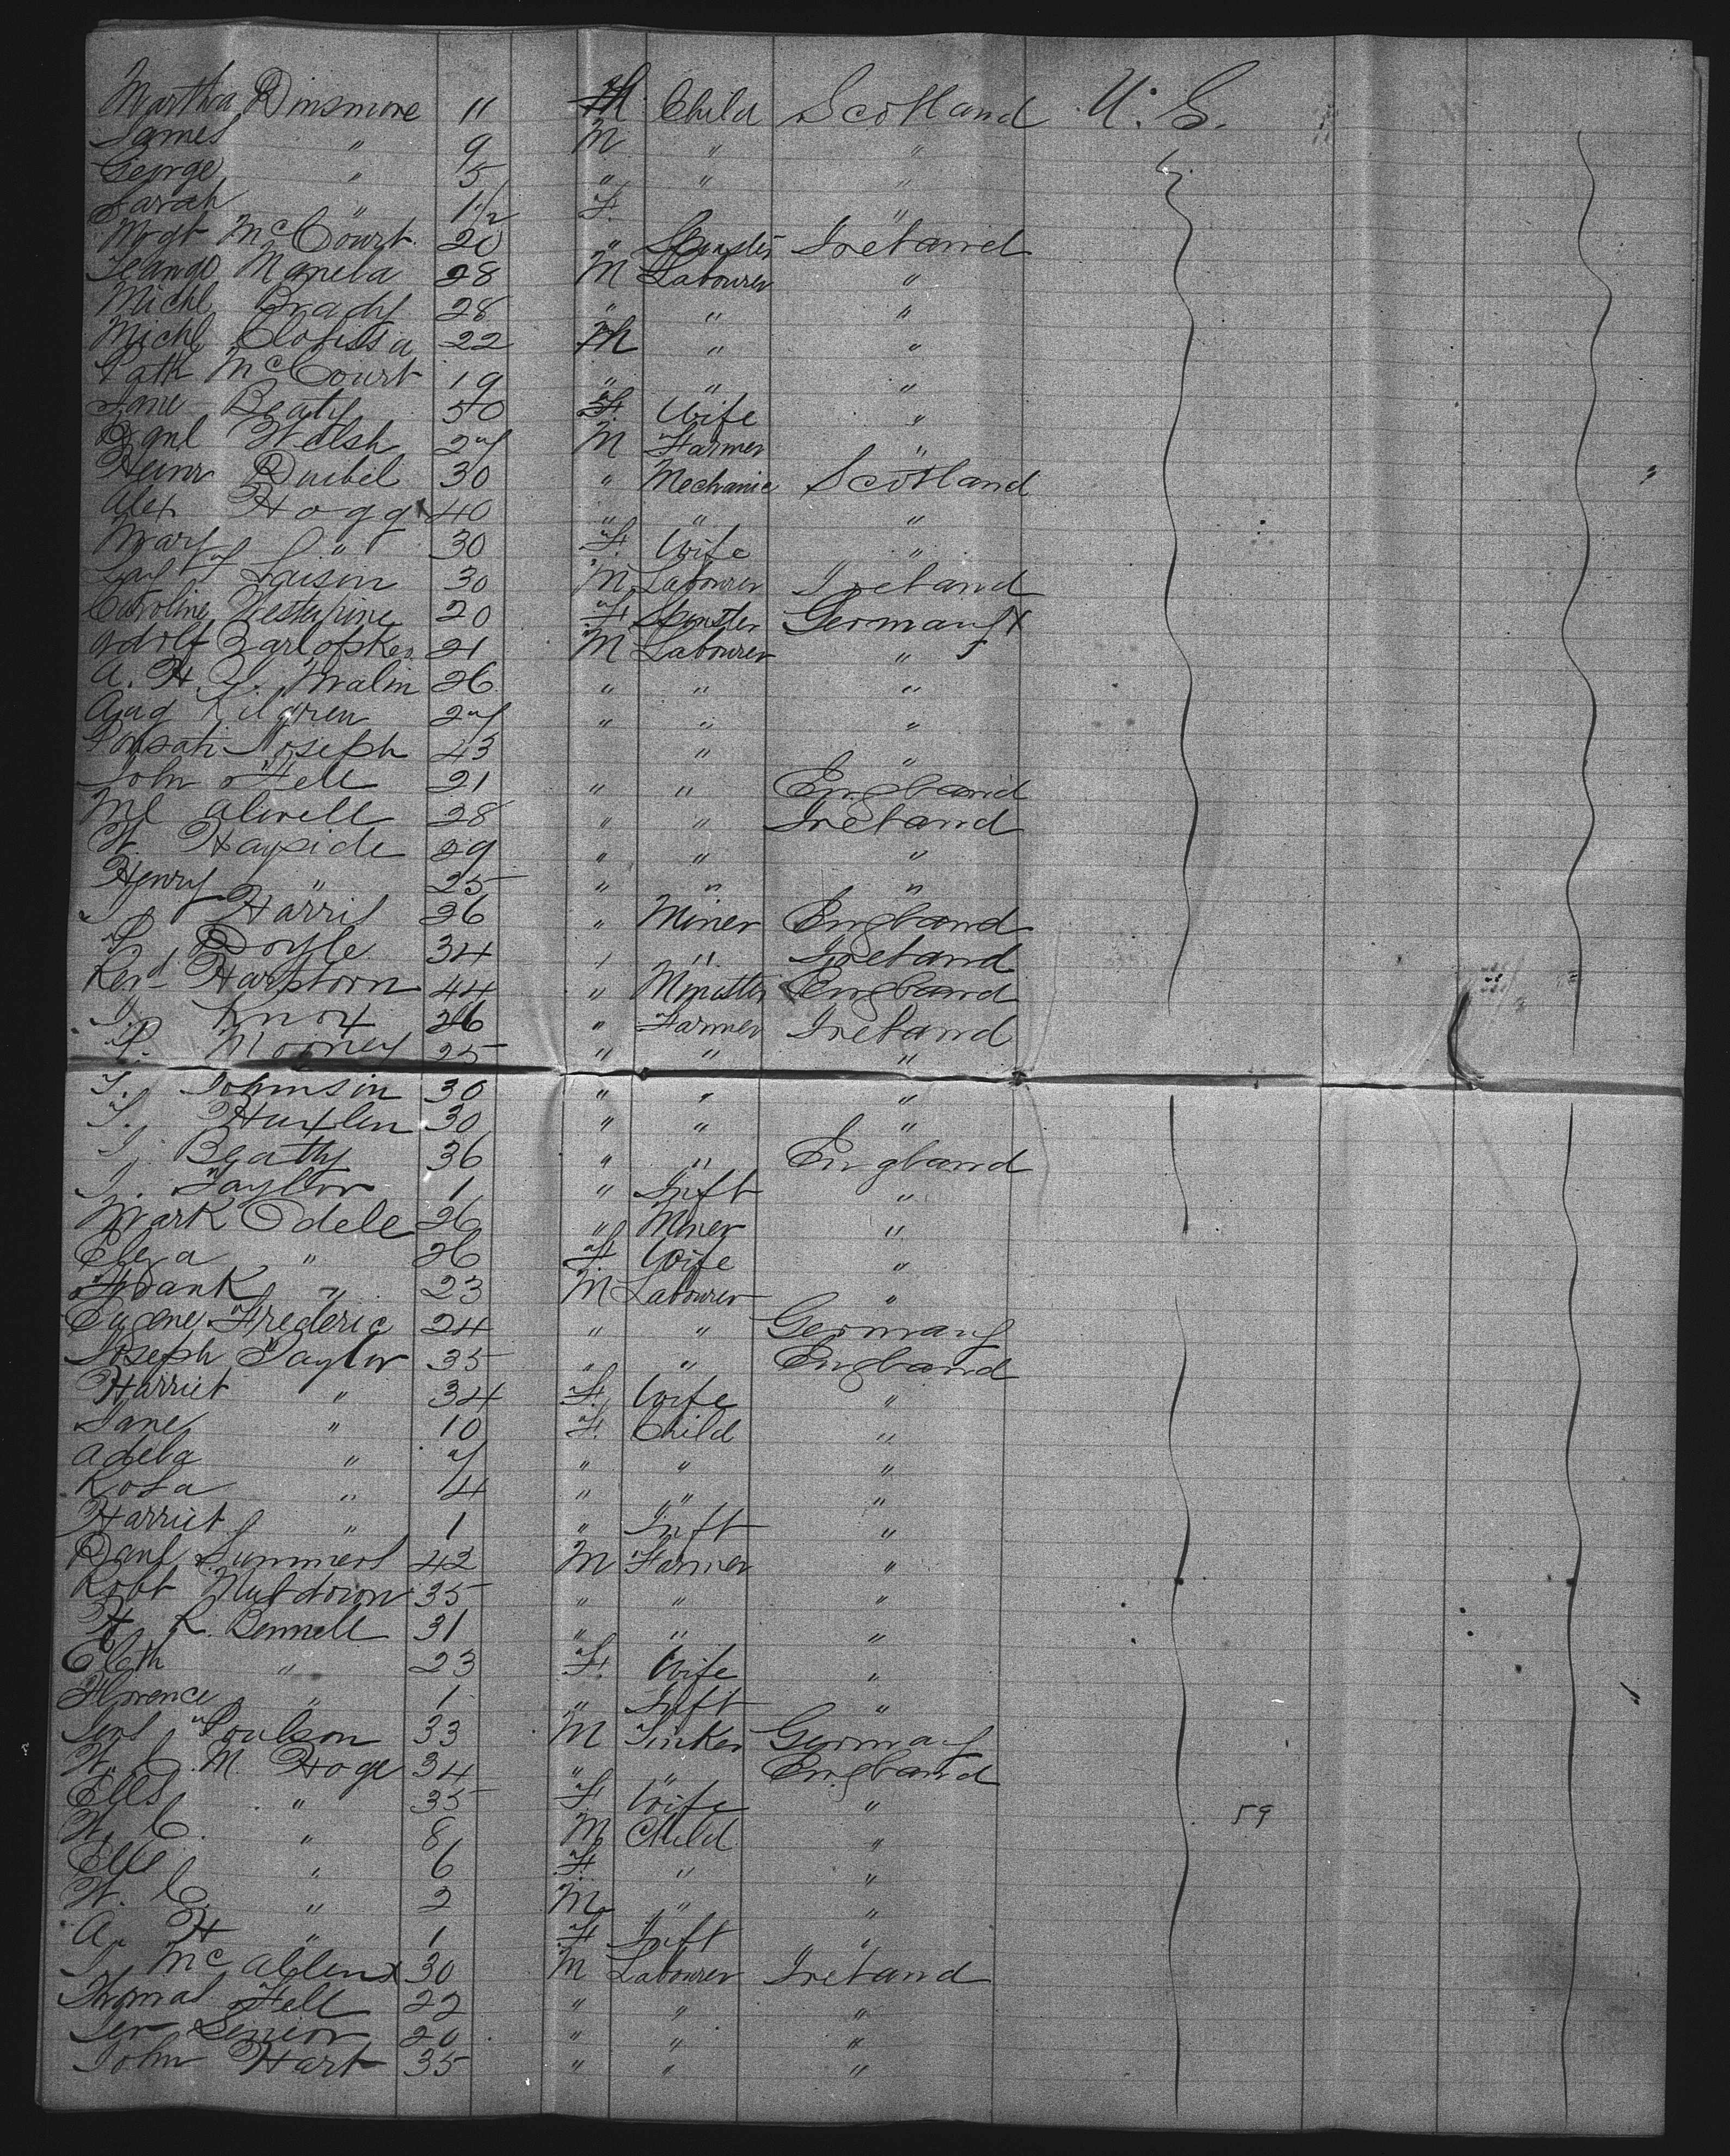 Martha Dinsmore 11 F Child Scotland U. S.
James " 9 M " "
George " 5 " " "
Sarah " 1 1/2 F. "
Mgt McCourt 20 " Spinster Ireland
Manela 28 M Labourer "
Michl Brady 28 " " "
Michl 22 M " "
Patk McCourt 19 " " "
Jane Beaty 50 F. Wife "
Danl Walsh 27 M Farmer "
Heinr Duebel 30 " Mechanic Scotland
Alex Hogg 40 " " "
Mary " 30 F. Wife "
30 M Labourer Ireland
Caroline 20 F Spinster Germany
Adolf 21 M Labourer "
A. H. Malin 26 " " "
Aug Kilgren 27 " " "
Joseph 43 " "
John Fell 21 " " England
Ml 28 " " Ireland
W. Hayside 29 " " "
Henry " 25 " " "
Harris 26 " Miner England
P. Doyle 34 " " Ireland
Revd 44 " Minister England
J. Knox 26 " Farmer Ireland
P. Mooney 25 " " "
J. Johnson 30 " " "
J. 30 " " "
J. Beatty 36 " " England
J. Taylor 1 " Inft "
Mark Odele 26 " Miner "
Eliza " 26 F. Wife "
Frank " 23 M Labourer "
Eugene Frederic 24 " " Germany
Joseph Taylor 35 " " England
Harriet " 34 F. Wife "
Jane " 10 F. Child "
Adela " 7 " " "
Rosa " 4 " " "
Harriet " 1 " Inft "
Danl Summers 42 M Farmer "
Robt 35 " " "
H. R. Bennell 31 " " "
Elbth " 23 F. Wife "
Florence " 1 " Inft "
Jens Poulson 33 M Tinker Germany
W. C. M. Hoge 34 " " England
" 35 F Wife "
W. C. " 8 M Child " 59
" 6 F. " "
W. C. " 2 M " "
A. H " 1 F Inft "
J. McAllen 30 M Labourer Ireland
Thomas Fell 22 " " "
Jer Senior 20 " " "
John Hart 35 " " "